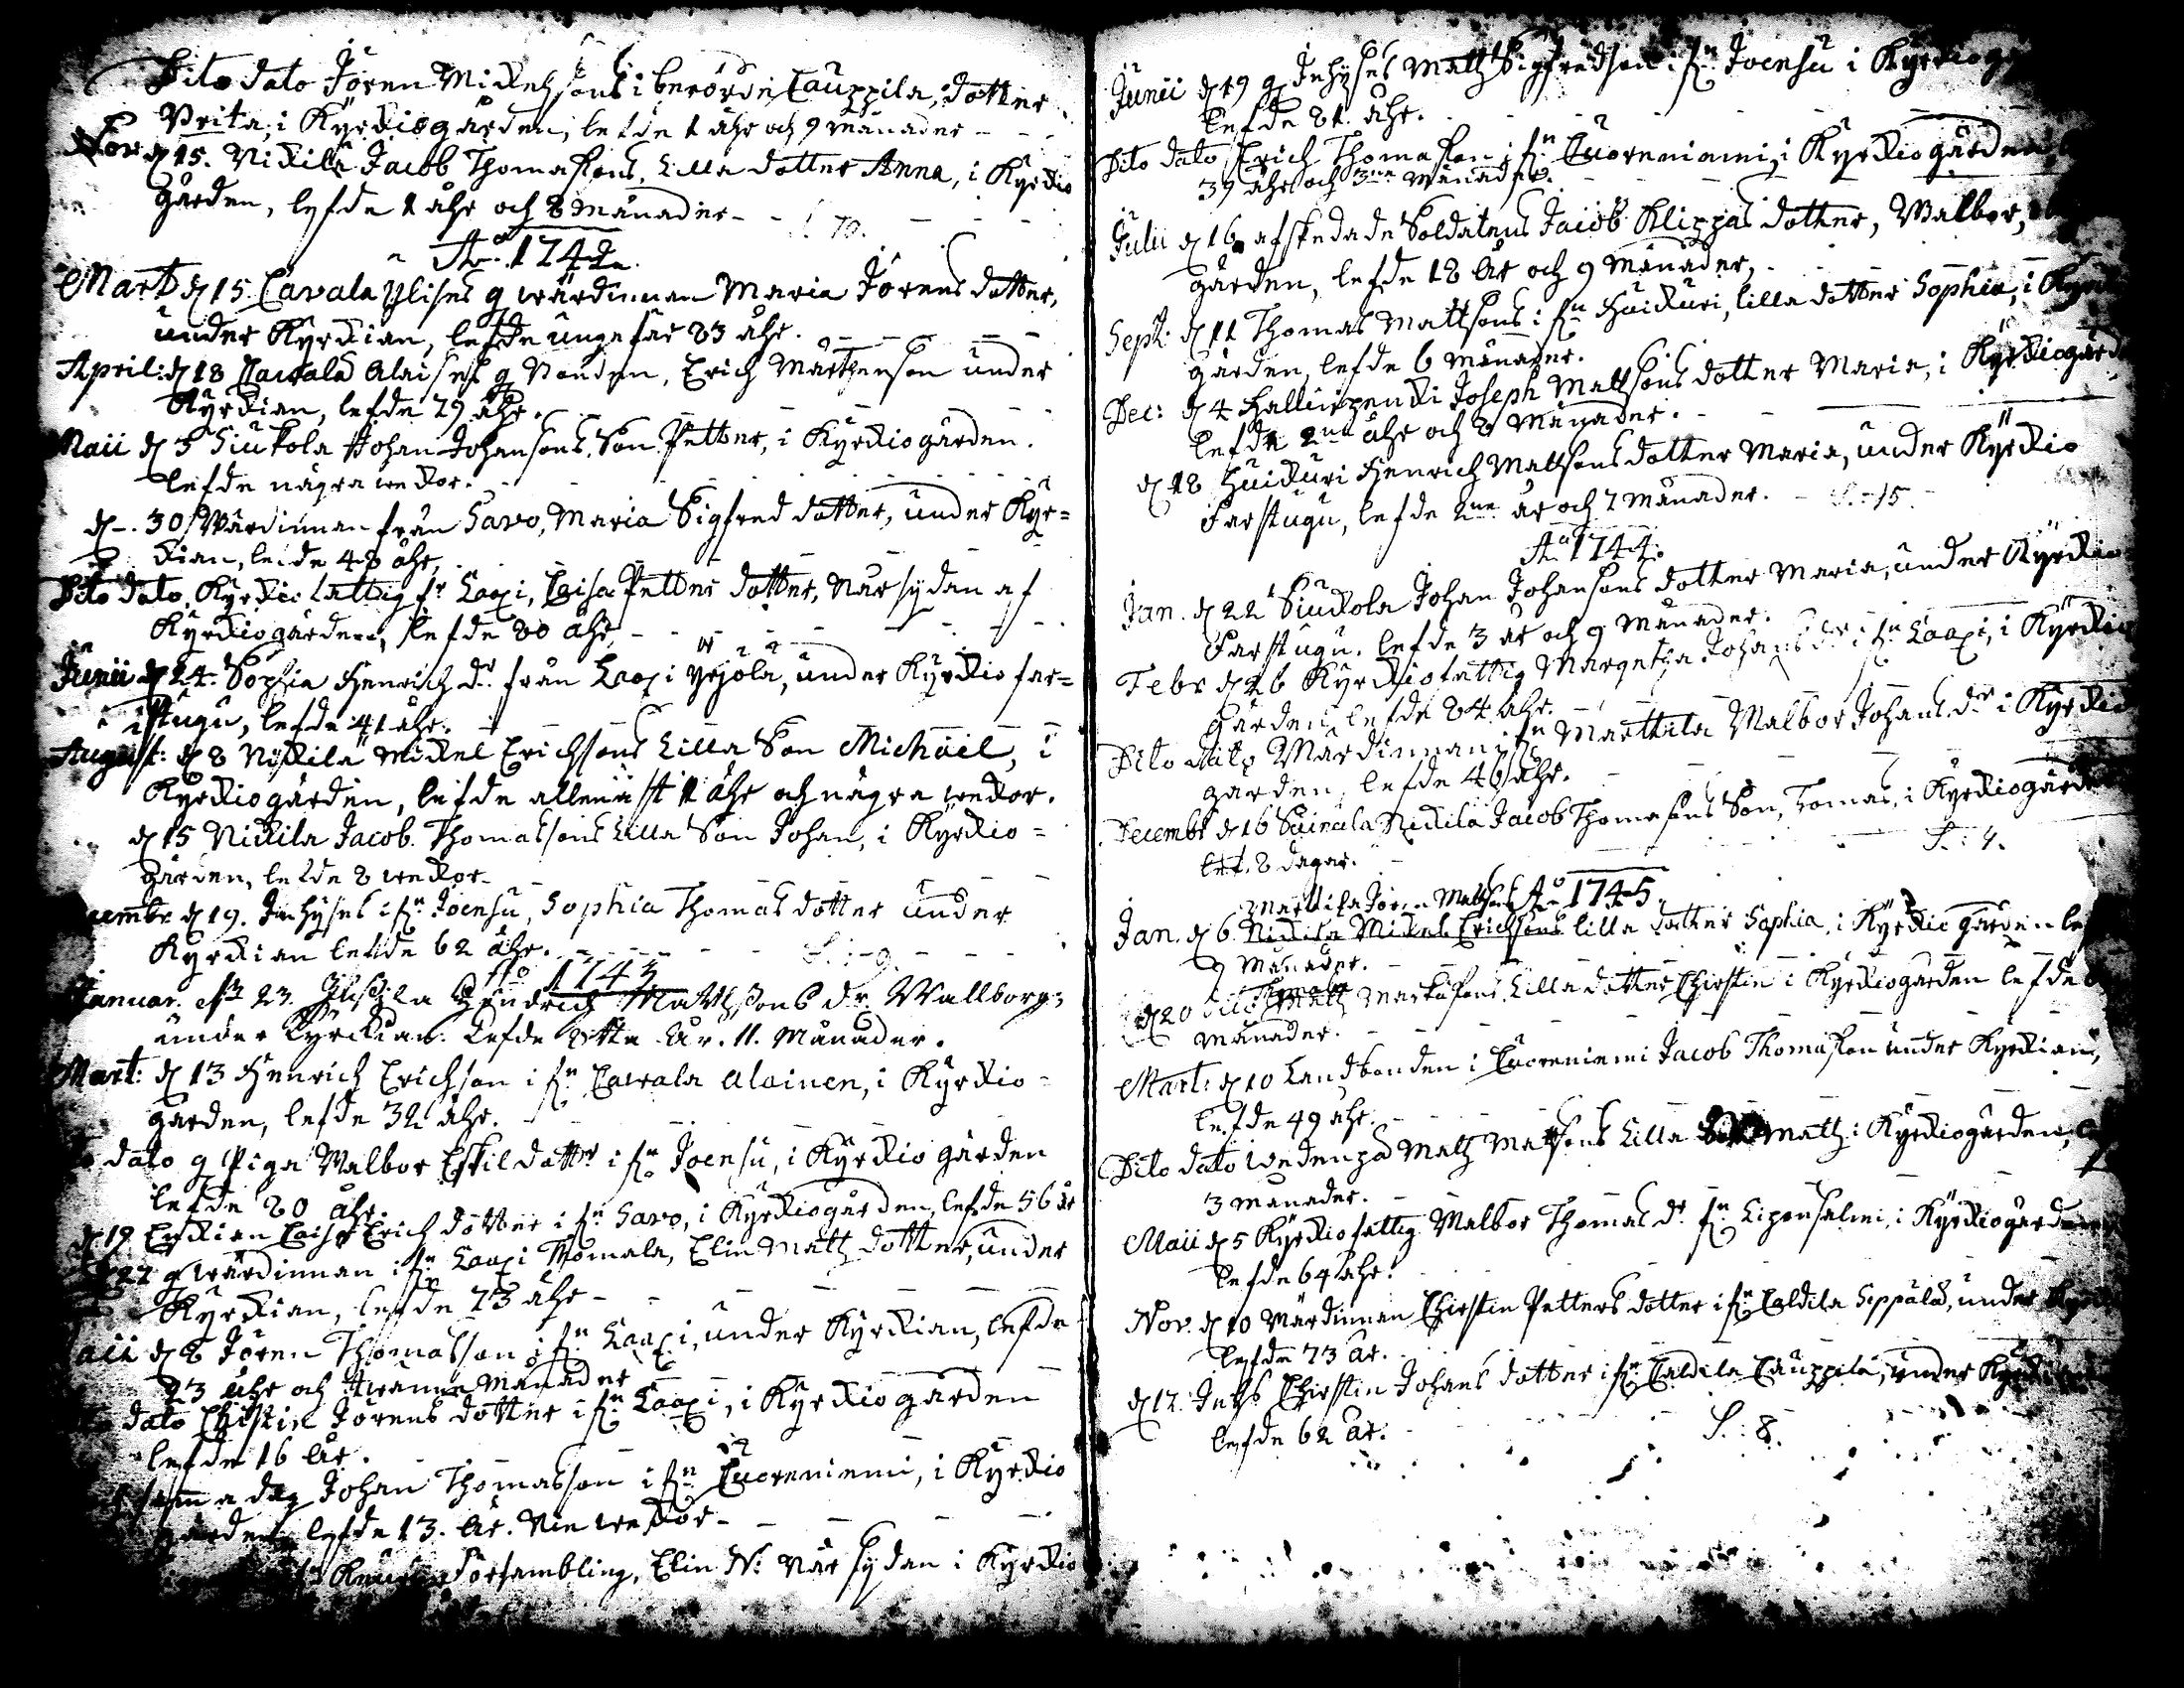 Dito dato Jören Mickelsons i berörde Cauppila, dotter
Brita, i Kyrkiogården, lefde 1 åhr och 9 månader
Nov: d 15. Nickilä Jacob Thomassons, Lilla dotter Anna, i Kyrkio
gården, lefde 1 åhr och 8 månader - S. 10.
Ao. 1742.
Mart d 15 Cavala Ylises g wärdinnan Maria Jörens dotter,
under Kyrkian, lefde ungefär 83 åhr.
April: d 18 Cawala Alaises g bonden, Erich Mårtenson under
Kyrkian, lefde 79 åhr.
Maii d 3 Siukola Johan Johansons, Son Petter, i Kyrkiogården.
lefde några wekor.
d - 30 Wärdinnan från Savo, Maria Sigfreds dotter, under Kyr=
kian, lefde 48 åhr,
Dito dato, Kyrkio fattig fr Laaxi, Caisa Petters dotter, När sydan af
Kyrkiogården, lefde 80 åhr,
Junii d 24. Sophia Henrichs dr från Laaxi Yrjölä, under Kyrkio far=
stugu, lefde 41 åhr.
August: d 8 Nickilä Mickel Erichsons Lilla Son Michaël, i
Kyrkiogården, lefde allenast 1 åhr och några wekor.
d 15 Nickila Jacob Thomassons Lilla Son Johan, i Kyrkio=
gården, lefde 8 wekor
cembr d 19. Inhyses i fn Joensu, Sophia Thomas dotter under
Kyrkian lefde 62 åhr. S. :9.
Ao 1743
Januar. d 23. Hendrich Mathssons dr. Wallborg;
under Kyrckian. Lefde Otta År. 11. Månader.
Mart: d 13 Henrich Erichson i fn Cawala Alainen, i Kyrkio=
gården, lefde 32 åhr.
dato g Piga Walbor Eskils dottr i fn Joensu, i Kyrkio gården
lefde 80 åhr.
d 19 Enkian Caisa Erichs dotter i fn Savo, i Kyrkiogården, lefde 56 år
27 g wärdinnan i fn Laaxi Thomala, Elin Matz dotter, under
Kyrkian, lefde 73 åhr
aii d 8 Jören Thomasson i fn Laaxi, under Kyrkian, lefde
23 åhr och Twänne Månader
dato Christin Jörens dotter i fn Laaxi, i Kyrkiogården
lefde 16 år.
samma dag Johan Thomasson i fn Cuoreniemi, i Kyrkio
gården lefde 13. År. Nie wekor
Försambling, Elin N: När sydan i Kyrkio
Junii d 19 g Inhyses Matz Sigfredson i fn Joensu i Kyrkiog
lefde 81. åhr.
Dito dato Erich Thomasson i fn Cuoreniemi, i Kyrkiogården,
39 åhr och 3ne Månader.
Julii d 16 afskedade Soldatens Jacob Klippas dotter, Walbor,
gården, lefde 18 år och 9 månader,
Sept: d 11 Thomas Mattsons i fn Huickuri, lilla dotter Sophia, i Kyrk
gården, lefde 6 månader.
Dec: d 4 Joseph Mattsons dotter Maria, i Kyrkiogård
lefde 2ne åhr och 8 Månader.
d 18 Huickuri Henrich Mattsons dotter Maria, under Kyrkio
Farstugu, lefde 2ne år och 7 Månader. S. :15
Ao 1744.
Jan. d 22 Siukola Johan Johansons dotter Maria, under Kyrkio
Farstugu. lefde 3 år och 9 Månader.
Febr d 26 Kyrkiofattig Margetha Johans dr i fn Laaxi, i Kyrkio
gården lefde 84 åhr.
Dito dato Wärdinnan i fn Marttila Walbor Johans dr i Kyrkio
gården, lefde 46 åhr.
Decembr d 16 Nickila Jacob Thomasons Son, Tomas, i Kyrkiogård
lef. 8 dagar. S: 4.
Ao 1745.
Marttila Jören Matsons
Jan. d 6. Nickila Mickel Erichsons lilla dotter Sophia, i Kyrkiogården lef
9 Månader.
Thomas
d 20 dito Matz Markusons Lilla dotter Christin i Kyrkiogården lefde
månader.
Mart: d 10 Landbonden i Cuoreniemi Jacob Thomasson under Kyrkian,
lefde 49 åhr.
Dito dato Matz Matsons Lilla Son Math: i Kyrkiogården,
3 månader.
Maii d 5 Kyrkiofattig Walbor Thomas dr fn Liponsalmi, i Kyrkiogården
lefde 64 åhr.
Nov. d 10 Wärdinnan Christin Petters dotter i fn Caldila Seppälä, under Kyrk
lefde 73 år.
d 12. Inhys Christin Johans dotter i fn Caldila Cauppila, under Kyrki
lefde 62 år. S: 8.